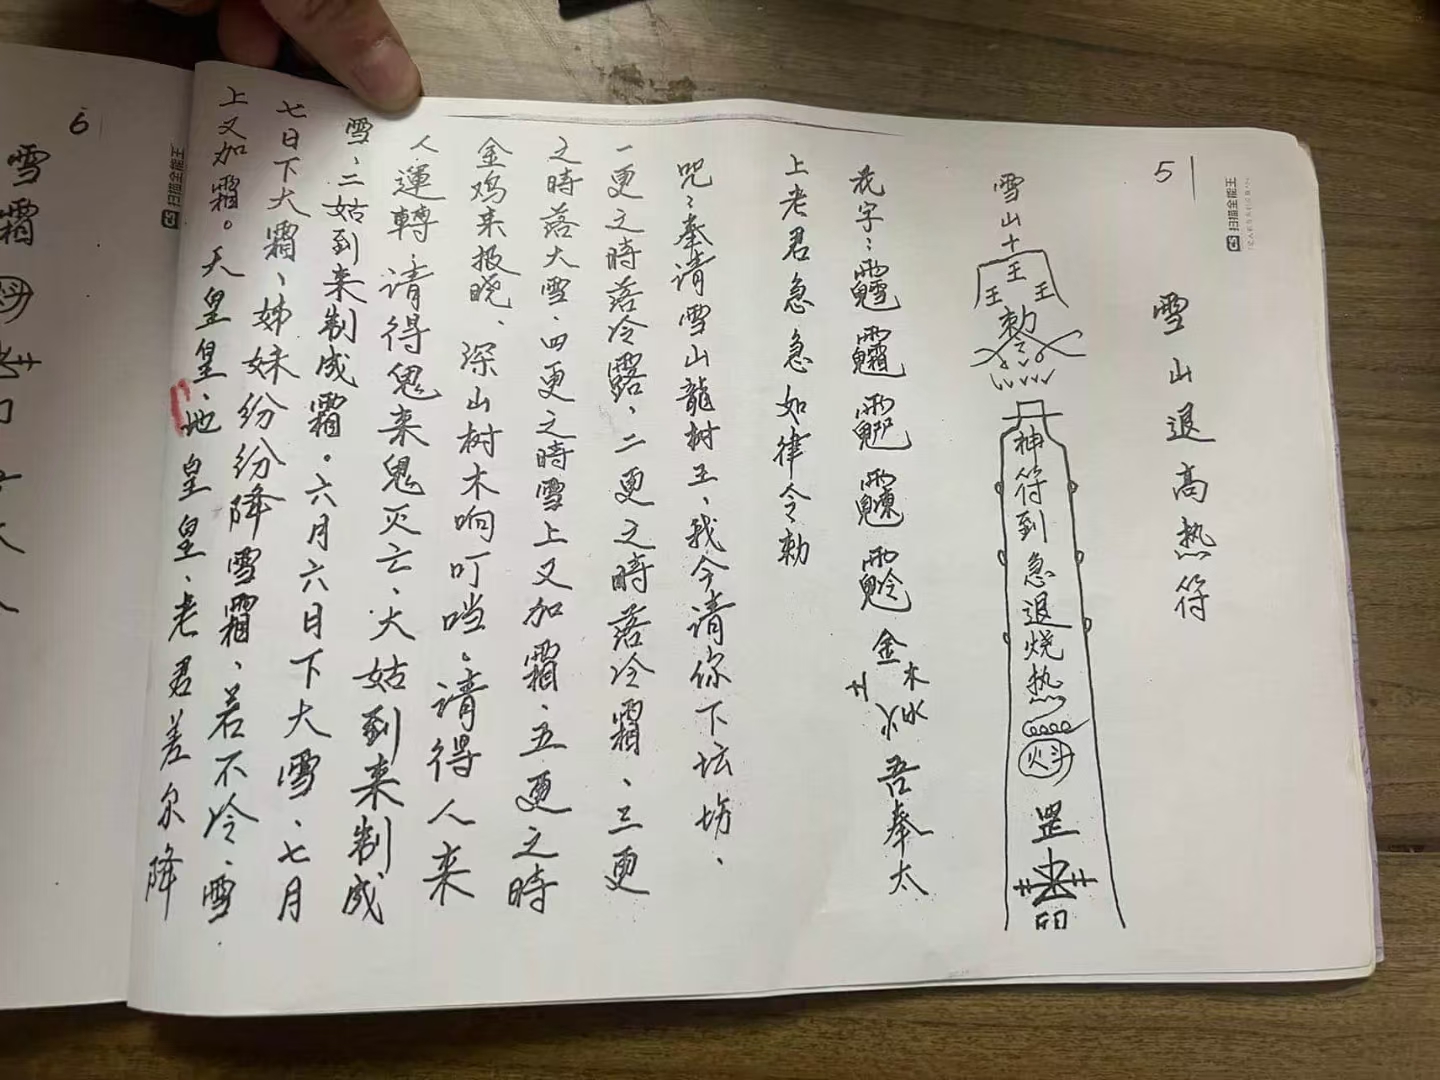 5
扫描全能王
雪山退高热符
雪山
王
王 王
勅
神符到急退烧热
火斗
罡
印
花字：
金木水火土
吾奉太
上老君急急如律令勅
咒：奉请雪山龍树王、我今请你下坛场、
一更之時落冷露、二更之時落冷霜、三更
之時落大雪、四更之時雪上又加霜、五更之時
金鸡来报晓、深山树木响叮噹。请得人来
人運轉、请得鬼来鬼灭亡、大姑到来制成
雪、二姑到来制成霜。六月六日下大雪、七月
七日下大霜、姊妹纷纷降雪霜、若不冷、雪
上又加霜。天皇皇、地皇皇、老君差尔降
扫描全能王
6
雪霜